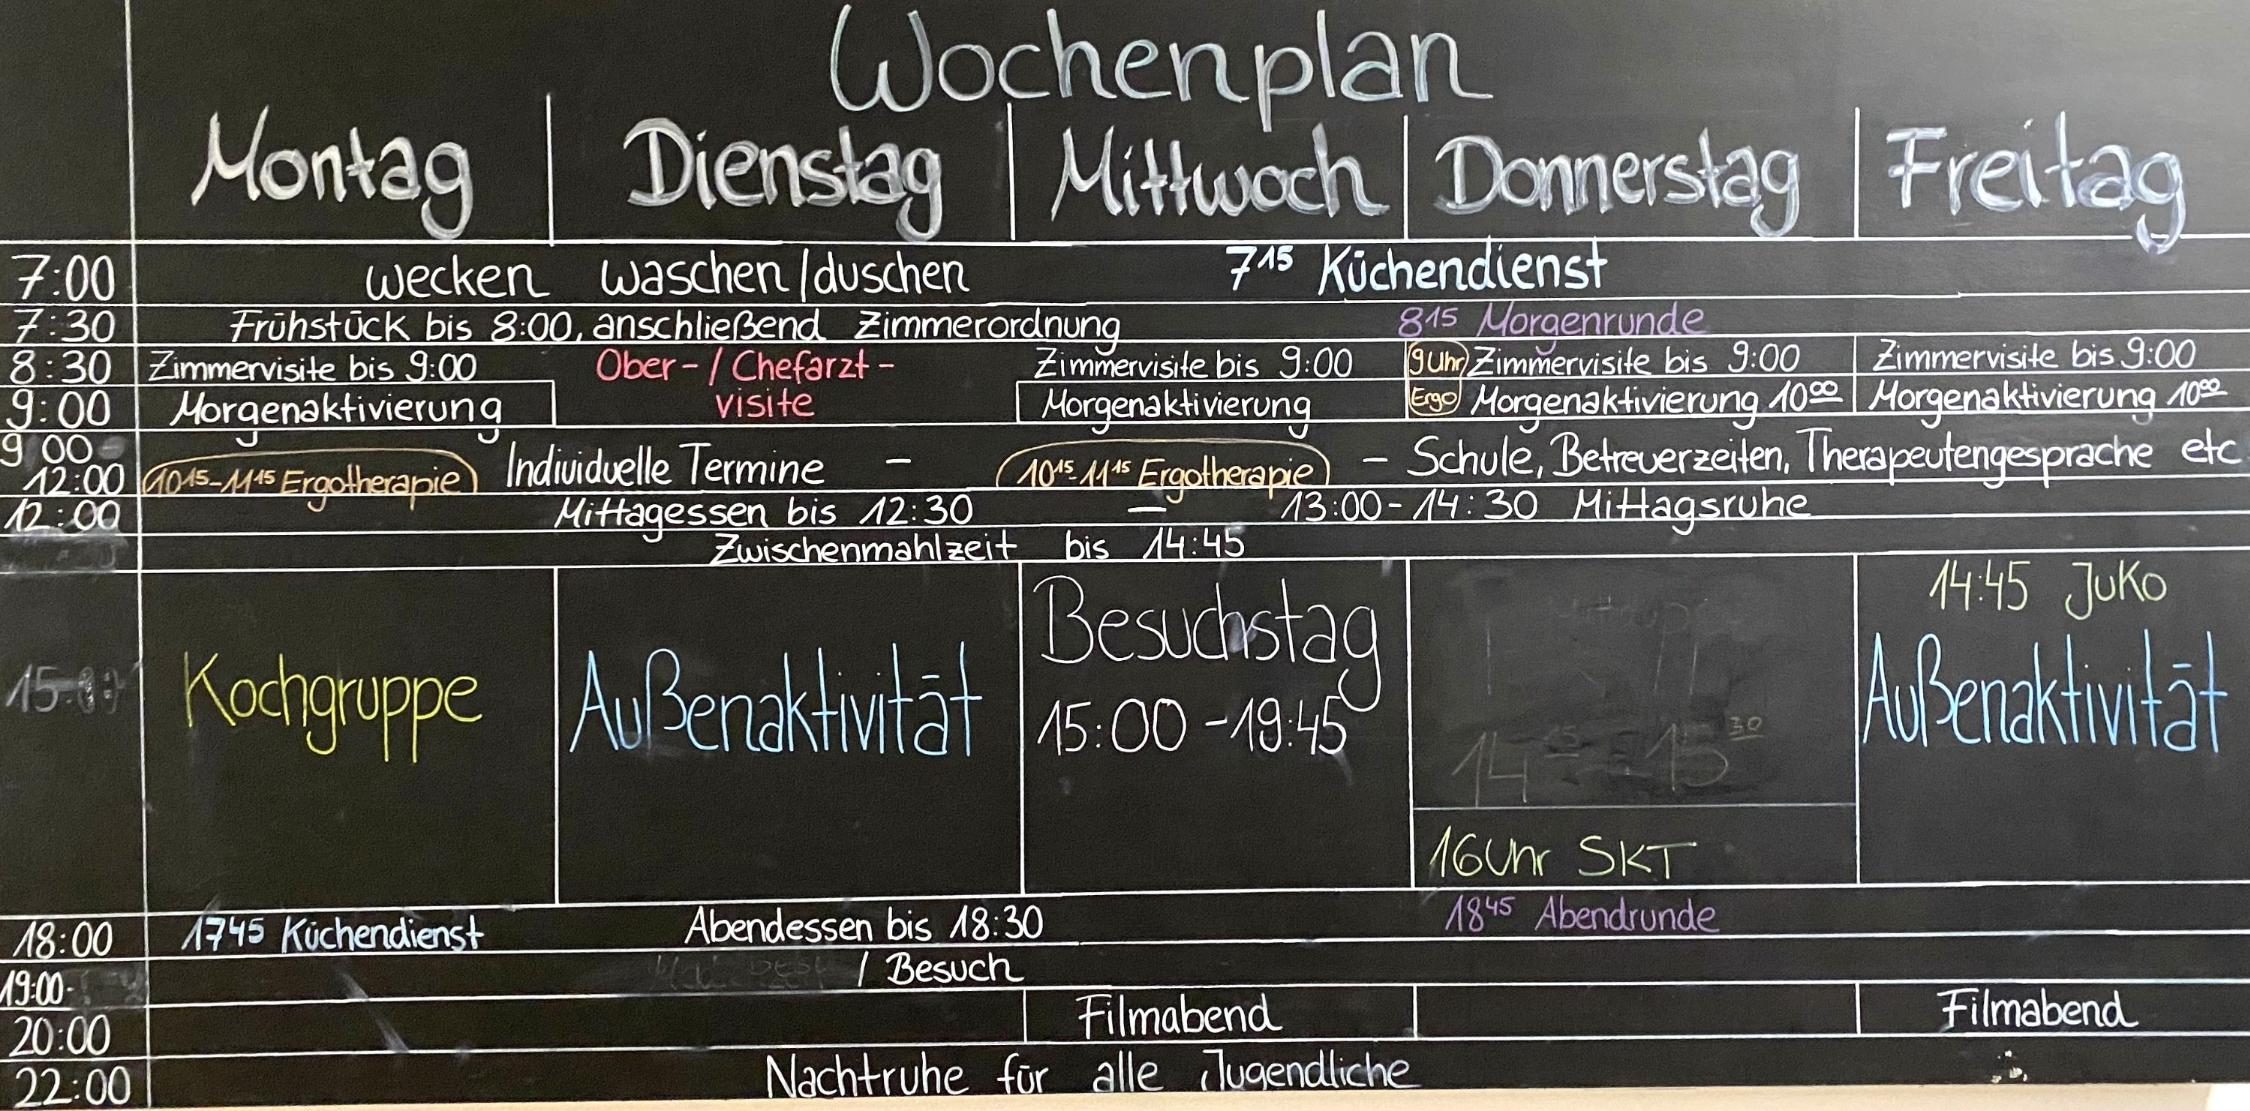 Wochenplan
Montag Dienstag Mittwoch Donnerstag Freitag
7:00 wecken waschen/duschen 7¹⁵ Küchendienst
7:30 Frühstück bis 8:00, anschließend Zimmerordnung 8¹⁵ Morgenrunde
8:30 Zimmervisite bis 9:00 Ober-/Chefarzt- Zimmervisite bis 9:00 9Uhr Zimmervisite bis 9:00 Zimmervisite bis 9:00
9:00 Morgenaktivierung visite Morgenaktivierung Ergo Morgenaktivierung 10⁰⁰ Morgenaktivierung 10⁰⁰
9 00-
12:00 10¹⁵-11¹⁵ Ergotherapie Individuelle Termine - 10¹⁵-11¹⁵ Ergotherapie - Schule, Betreuerzeiten, Therapeutengespräche etc
12:00 Mittagessen bis 12:30 - 13:00-14:30 Mittagsruhe
Zwischenmahlzeit bis 14:45
14:45 JuKo
Kochgruppe Außenaktivität Besuchstag Außenaktivität
15:00-19:45
16Uhr SKT
18:00 17⁴⁵ Küchendienst Abendessen bis 18:30 18⁴⁵ Abendrunde
19:00- / Besuch
20:00 Filmabend Filmabend
22:00 Nachtruhe für alle Jugendliche